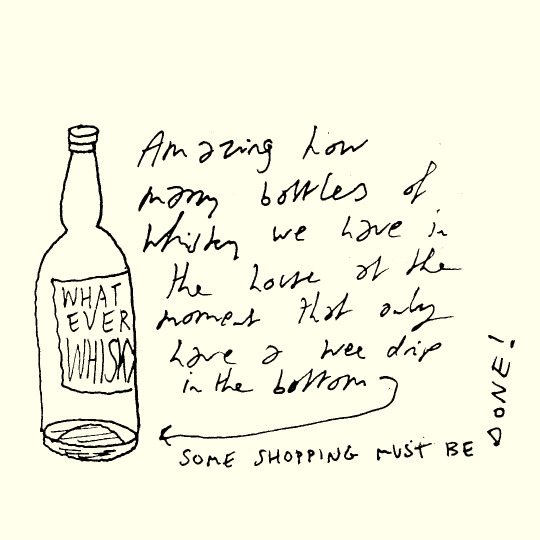 WHAT
EVER
WHISKY
Amazing how
many bottles of
whiskey we have in
the house at the
moment that only
have a wee drip
in the bottom
SOME SHOPPING MUST BE DONE!